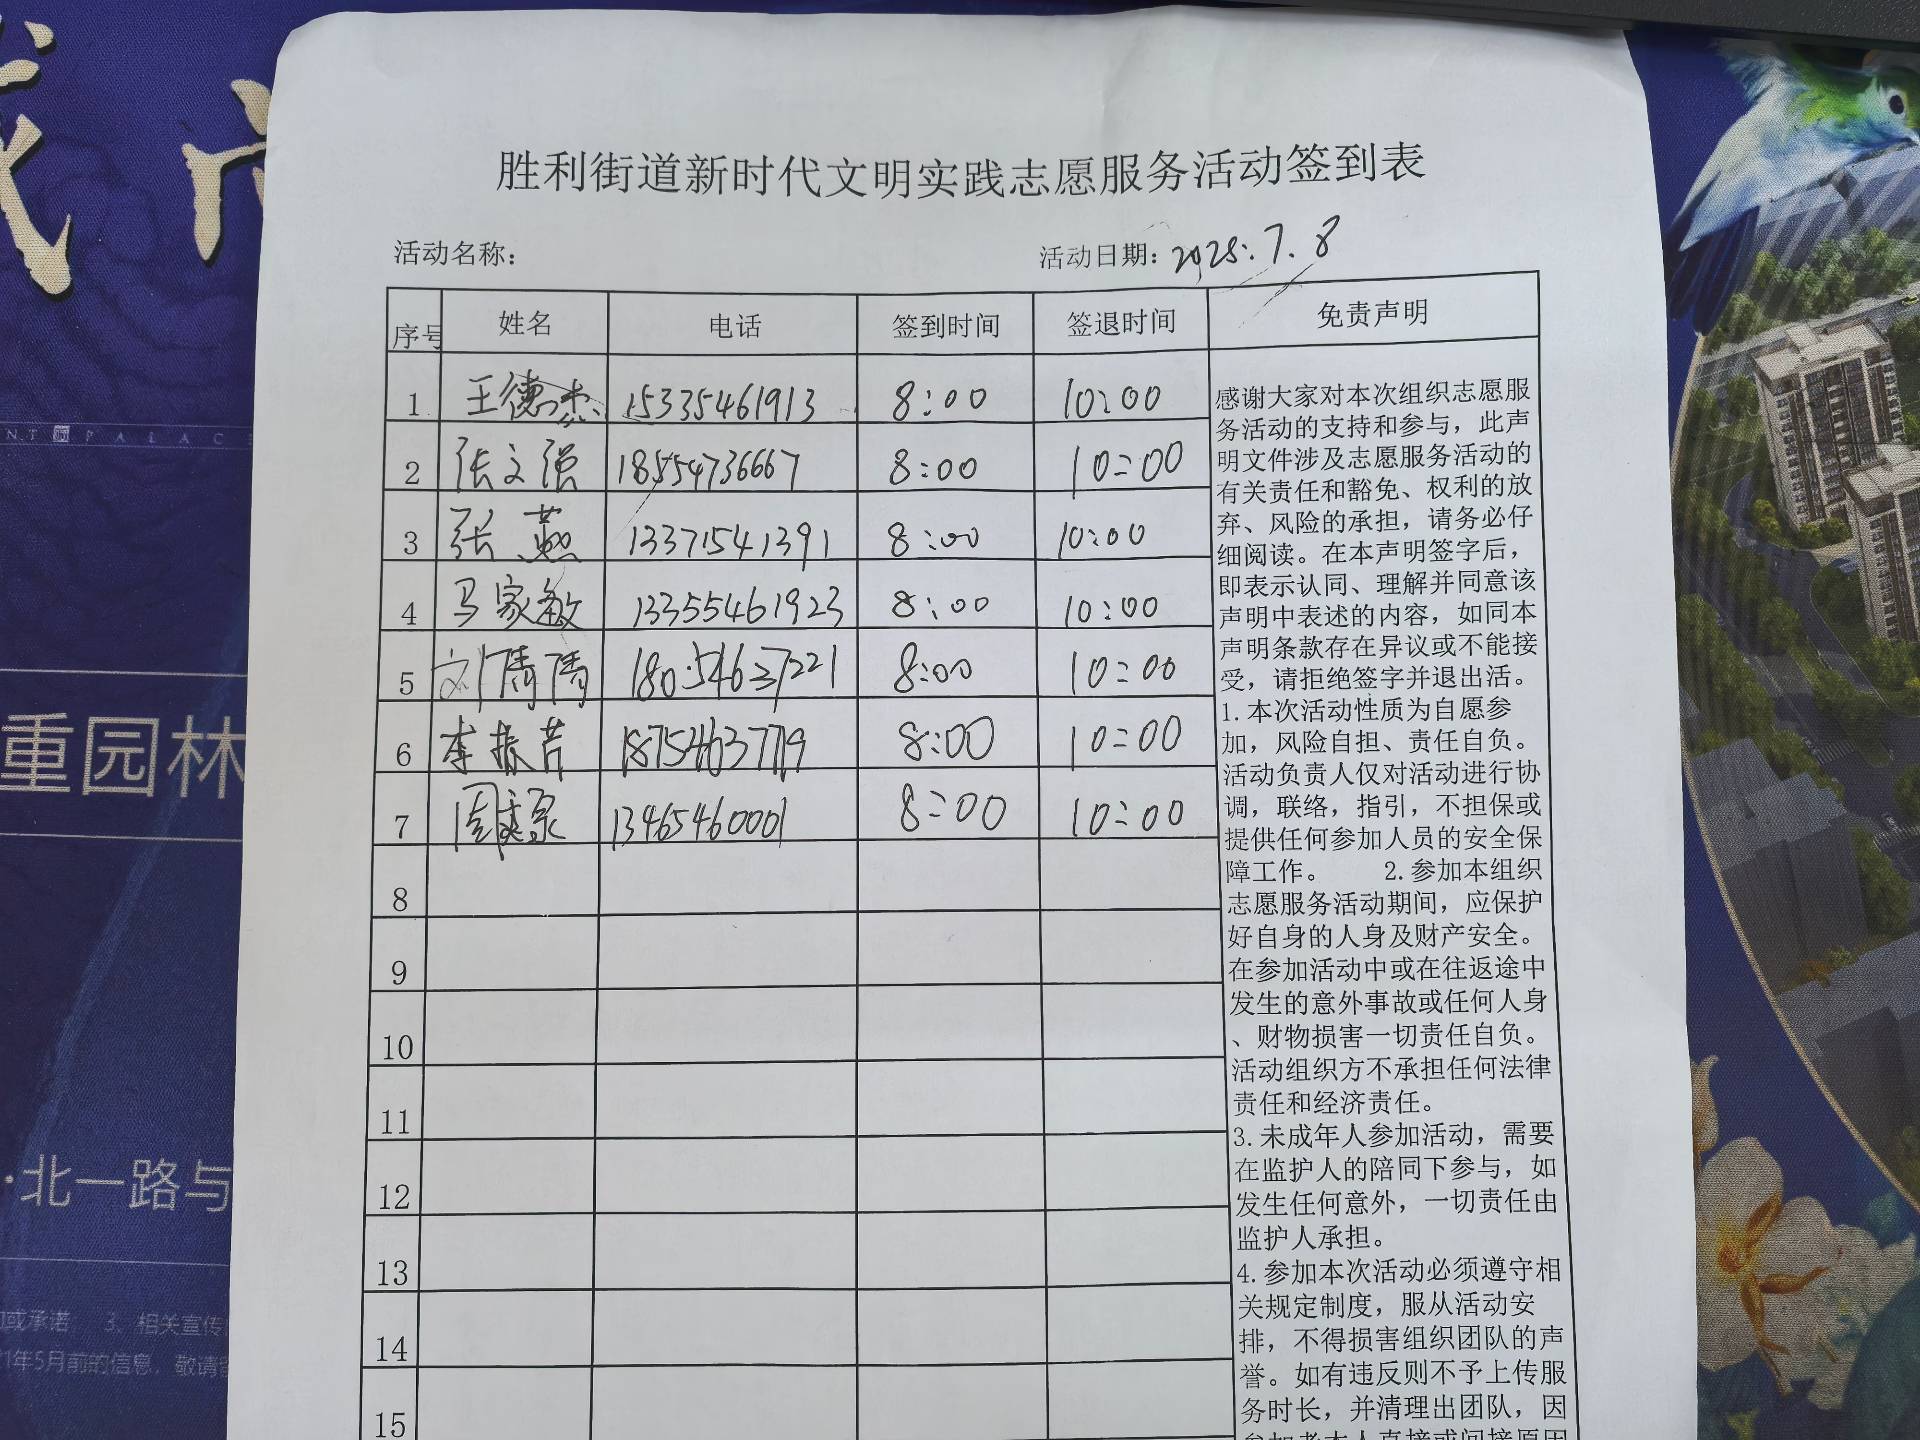 胜利街道新时代文明实践志愿服务活动签到表
活动名称：
活动日期：2025.7.8
序号 姓名 电话 签到时间 签退时间 免责声明
1 王德杰 15335461913 8:00 10:00
2 张文强 18554736667 8:00 10:00
3 张燕 13371541391 8:00 10:00
4 马家敏 13355461923 8:00 10:00
5 刘倩倩 18054637221 8:00 10:00
6 李振芳 18754637719 8:00 10:00
7 13465460001 8:00 10:00
8
9
10
11
12
13
14
15
感谢大家对本次组织志愿服
务活动的支持和参与，此声
明文件涉及志愿服务活动的
有关责任和豁免、权利的放
弃、风险的承担，请务必仔
细阅读。在本声明签字后，
即表示认同、理解并同意该
声明中表述的内容，如同本
声明条款存在异议或不能接
受，请拒绝签字并退出活。
1.本次活动性质为自愿参
加，风险自担、责任自负。
活动负责人仅对活动进行协
调，联络，指引，不担保或
提供任何参加人员的安全保
障工作。 2.参加本组织
志愿服务活动期间，应保护
好自身的人身及财产安全。
在参加活动中或在往返途中
发生的意外事故或任何人身
、财物损害一切责任自负。
活动组织方不承担任何法律
责任和经济责任。
3.未成年人参加活动，需要
在监护人的陪同下参与，如
发生任何意外，一切责任由
监护人承担。
4.参加本次活动必须遵守相
关规定制度，服从活动安
排，不得损害组织团队的声
誉。如有违反则不予上传服
务时长，并清理出团队，因
重园林
·北一路与
或承诺； 3、相关宣传
1年5月前的信息，敬请
PALACE